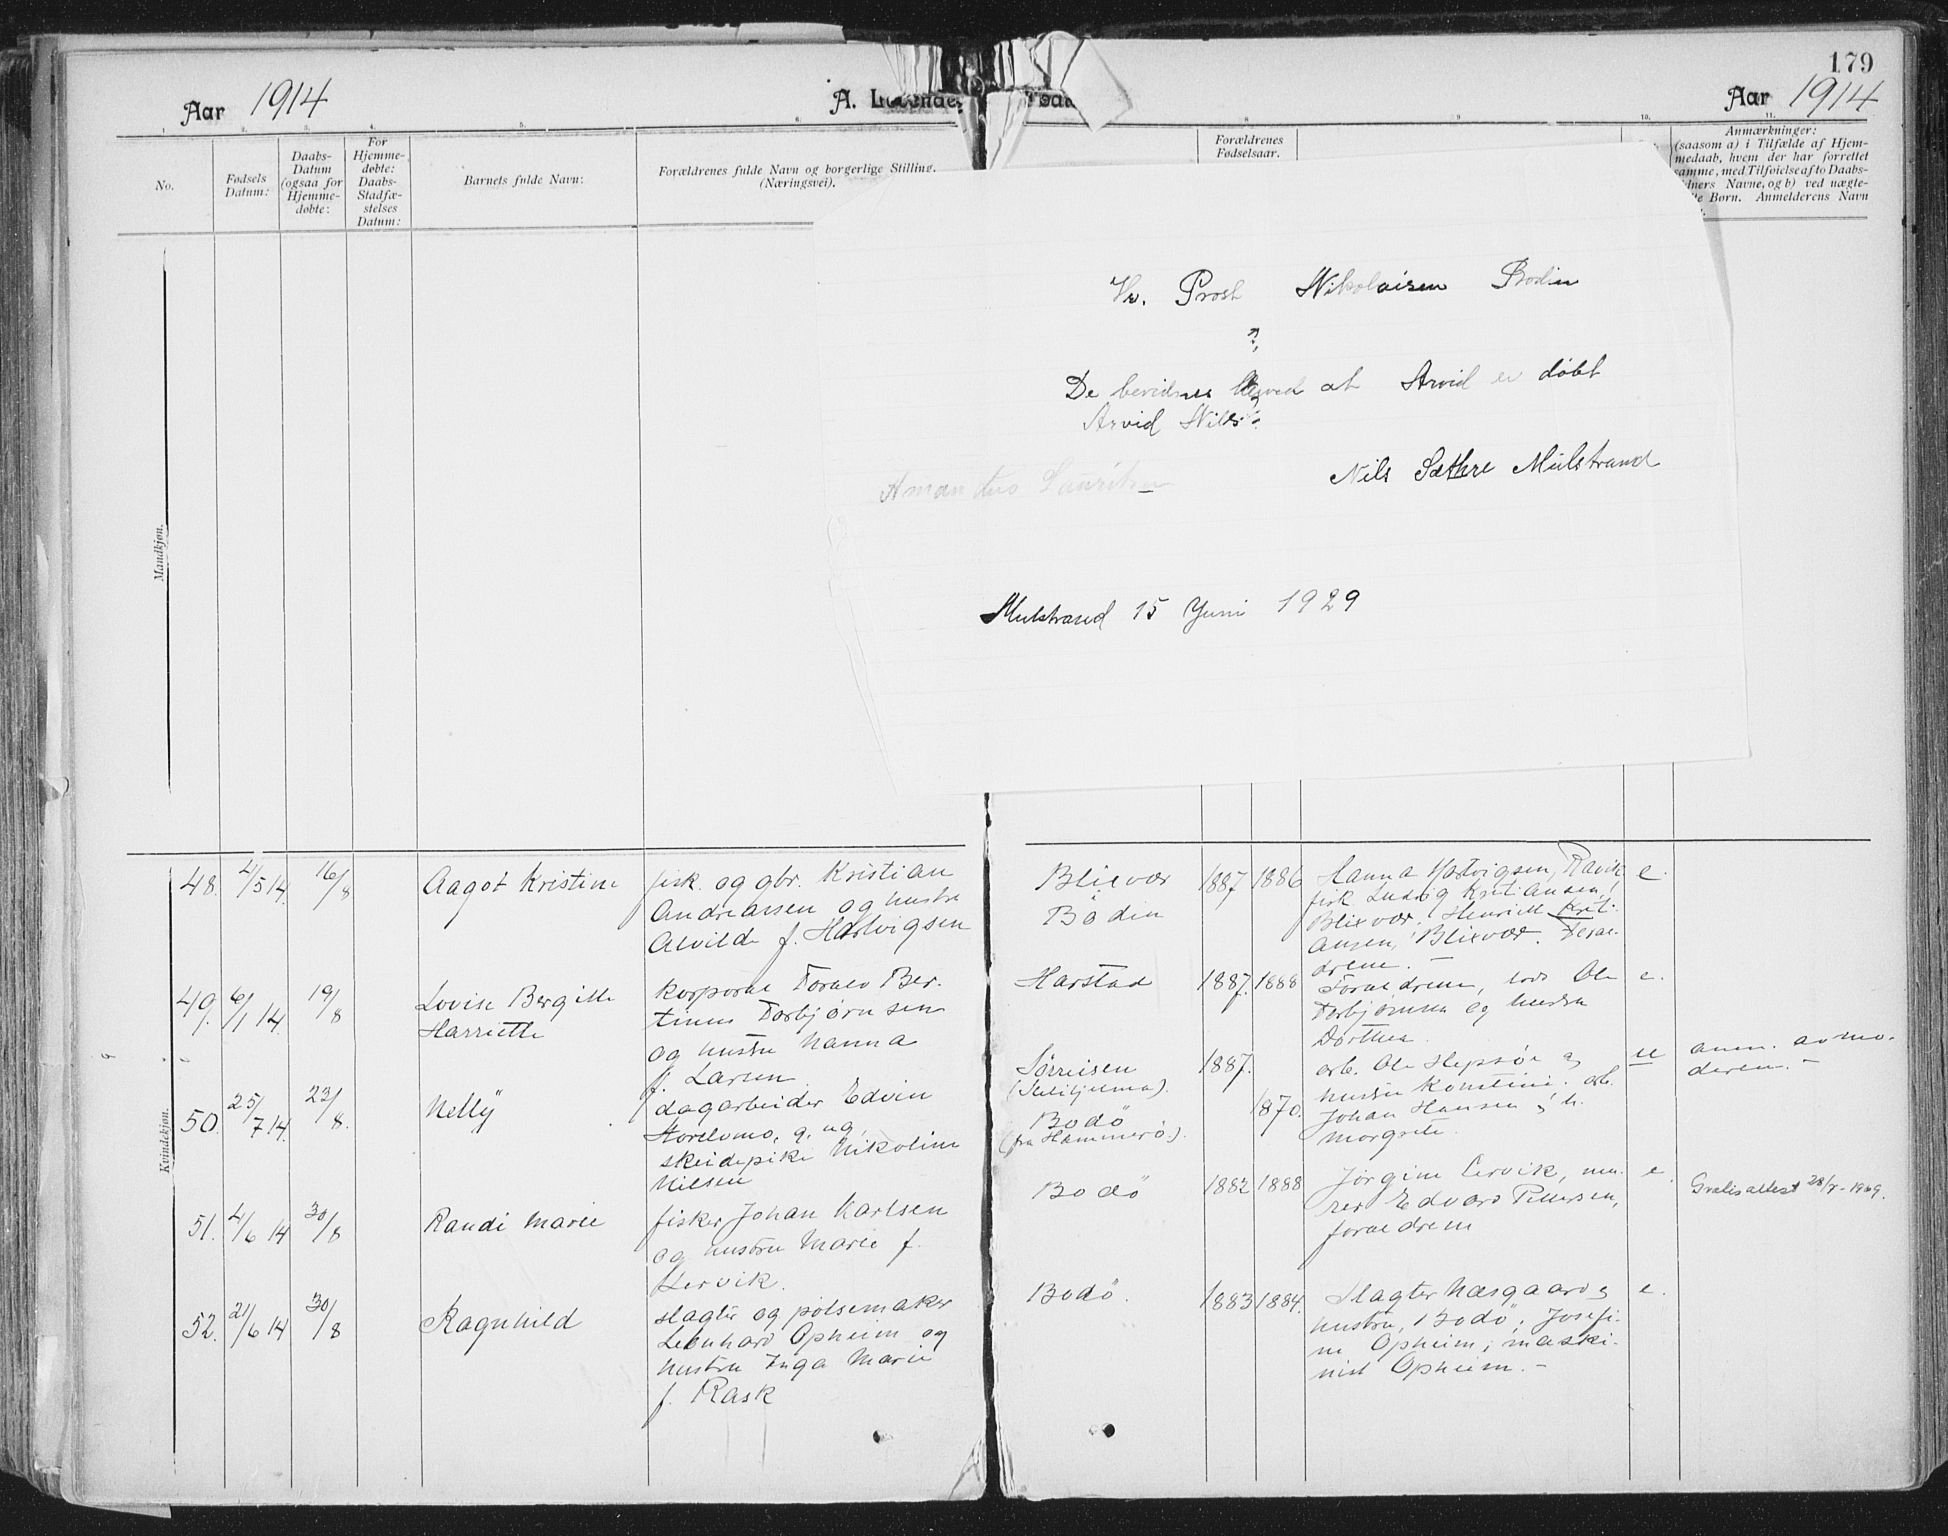 179
Aar 1914
A.
Aar 1914
1. 2. 3. 4. 5. 6. 8 9 10. 11.
No.
Fødsels
Datum:
Daabs-
Datum
(ogsaa for
Hjemme-
døbte:
For
Hjemme-
døbte:
Daabs-
Stadfæ-
stelses
Datum:
Barnets fulde Navn:
Forældrenes fulde Navn og borgerlige Stilling.
(Næringsvei).
Forældrenes
Fødselsaar.
Anmærkninger:
(saasom a) i Tilfælde af Hjem-
medaab, hvem der har forrettet
samme, med Tilføielse af to Daabs-
vidners Navne, og b) ved uægte-
Børn. Anmelderens Navn
Mandkjøn.
Hr. Prost Nikolaisen Bodin
?
De bevidnes herved at Arvid er døbt
Arvid Nils
Nils Sæthre Mulstrand
Amandus Lauritsen
Mulstrand 15 Juni 1929
Kvindekjøn.
48. 4/5 14. 16/8 Aagot Kristine
fisk. og gbr. Kristian
Andreassen og hustru
Alvilde f. Hartvigsen
Blixvær
Bodin
1887 1886
Hanna Hartvigsen, Ravik
fisk Ludvig Kristiansen,
Blixvær, Henriette Krist-
iansen, Blixvær. Foræl-
drene. —
e.
49. 6/1 14. 19/8 Lovise Bergitte
Harriette
korporal Toralv Ber-
tinus Torbjørnsen
og hustru Nanna
f. Larsen
Harstad
1887. 1888
Forældrene, Ole
Torbjørnsen og hustru
Dorthea
e.
50. 25/7 14. 23/8. Nelly
dagarbeider Edvin
Storelvmo, g. og
skeidepike Nikoline
Nilsen
Sørreisen
(Sulitjelma).
Bodö
(fra Hammerö).
1887.
1870.
arb. Ole Hepsöe og
hustru Konstine. arb.
Johan Hansen og h.
Margrete.
u
anm. av mo-
deren. —
51. 4/6 14 30/8 Randi Marie
fisker Johan Karlsen
og hustru Marie f.
Lervik.
Bodö
1882 1888
Jørgine Lervik, mu-
rer Edvard Pettersen,
forældrene
e.
Gratisattest 28/7 - 1969.
52. 21/6 14 30/8 Ragnhild
slagter og pølsemaker
Leonhard Opheim og
hustru Inga Marie
f. Rask
Bodö.
1883 1884.
Slagter Næsgaard og
hustru, Bodö, Josefi-
ne Opheim, maski-
nist Opheim. —
e.